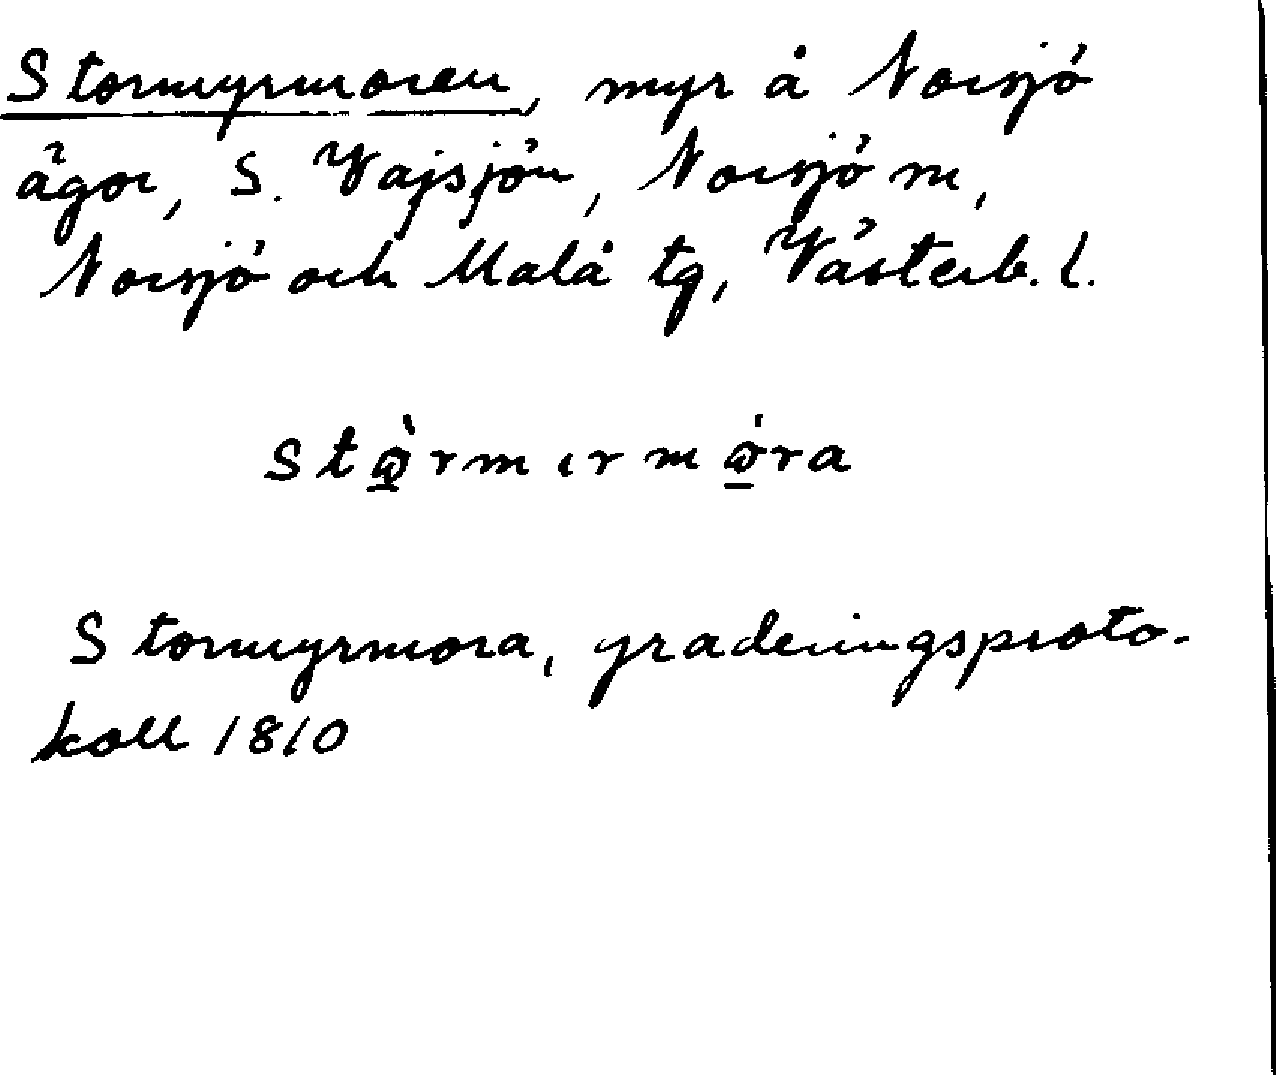 Stormyrmoren, myr å Norsjö
ägor, S. Vajsjön, Norsjö m,
Norsjö och Malå tg, Västerb. l.
stὼ̲rmırmώ̲ra
Stormyrmora, graderingsproto-
koll 1810